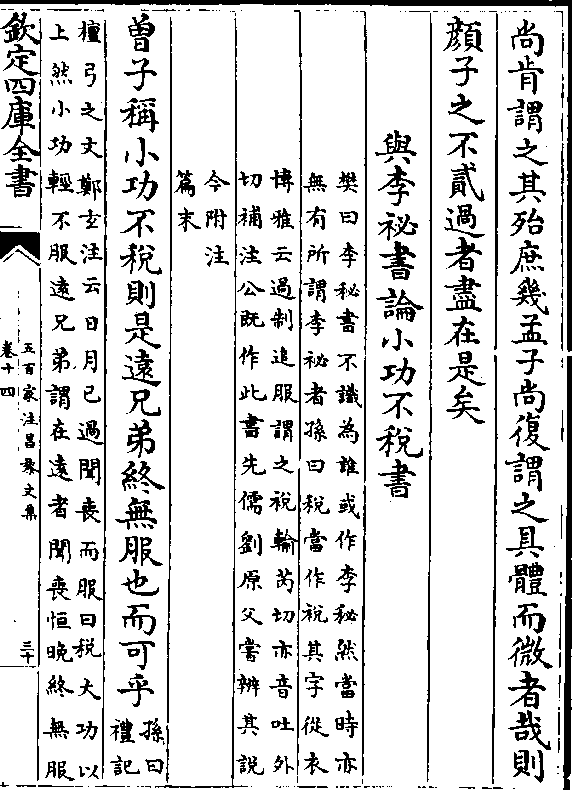 尚肯謂之其殆庶幾孟子尚復謂之具體而微者哉則
顔子之不貳過者盡在是矣
與李祕書論小功不稅書
樊曰李秘書不識為誰或作李秘然當時亦
無有所謂李祕者孫曰稅當作裞其字從衣
博雅云過制追服謂之裞輸芮切亦音吐外
切補注公既作此書先儒劉原父嘗辨其說
今附注
篇末
曽子稱小功不稅則是遠兄弟終無服也而可乎
孫曰
禮記
檀弓之文鄭玄注云日月已過聞喪而服曰稅大功以
上然小功輕不服遠兄弟謂在遠者聞喪恒晚終無服
欽定四庫全書
五百家注昌黎文集
卷十四
三十